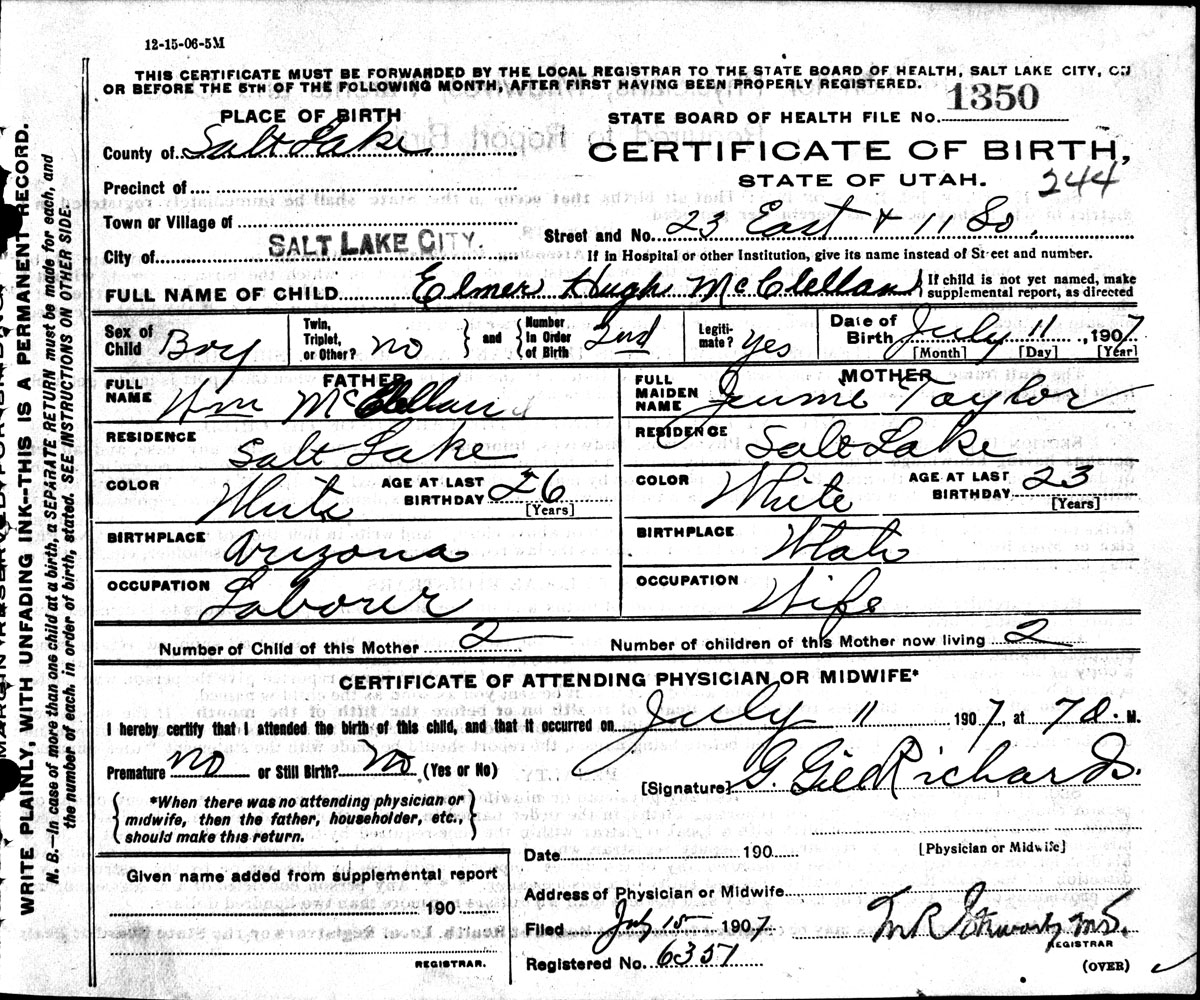 12-15-06-5M
THIS CERTIFICATE MUST BE FORWARDED BY THE LOCAL REGISTRAR TO THE STATE BOARD OF HEALTH, SALT LAKE CITY, ON
OR BEFORE THE 5TH OF THE FOLLOWING MONTH, AFTER FIRST HAVING BEEN PROPERLY REGISTERED.
STATE BOARD OF HEALTH FILE No. 1350
PLACE OF BIRTH
County of Salt Lake
CERTIFICATE OF BIRTH,
STATE OF UTAH. 244
Precinct of
Town or Village of
Street and No. 23 East + 11 So.
City of SALT LAKE CITY.
If in Hospital or other Institution, give its name instead of Street and number.
FULL NAME OF CHILD Elmer Hugh McClelland
If child is not yet named, make supplemental report, as directed
Sex of Child Boy
Twin, Triplet, or Other? no
and Number in Order of Birth 2nd
Legitimate? yes
Date of Birth July 11, 1907
[Month] [Day] [Year]
FATHER
FULL NAME Wm McClelland
RESIDENCE Salt Lake
COLOR White AGE AT LAST BIRTHDAY 26 [Years]
BIRTHPLACE Arizona
OCCUPATION Laborer
MOTHER
FULL MAIDEN NAME Taylor
RESIDENCE Salt Lake
COLOR White AGE AT LAST BIRTHDAY 23 [Years]
BIRTHPLACE Utah
OCCUPATION Wife
Number of Child of this Mother 2 Number of children of this Mother now living 2
CERTIFICATE OF ATTENDING PHYSICIAN OR MIDWIFE*
I hereby certify that I attended the birth of this child, and that it occurred on July 11 1907, at 7 a. M.
Premature no or Still Birth? no (Yes or No)
[Signature] G. Gill Richards.
*When there was no attending physician or
midwife, then the father, householder, etc.,
should make this return.
Date 190 [Physician or Midwife]
Given name added from supplemental report
190
REGISTRAR.
Address of Physician or Midwife
Filed July 15 1907 M.D.
REGISTRAR
Registered No. 6357
(OVER)
WRITE PLAINLY, WITH UNFADING INK--THIS IS A PERMANENT RECORD.
N. B.—In case of more than one child at a birth, a SEPARATE RETURN must be made for each, and
the number of each, in order of birth, stated. SEE INSTRUCTIONS ON OTHER SIDE.